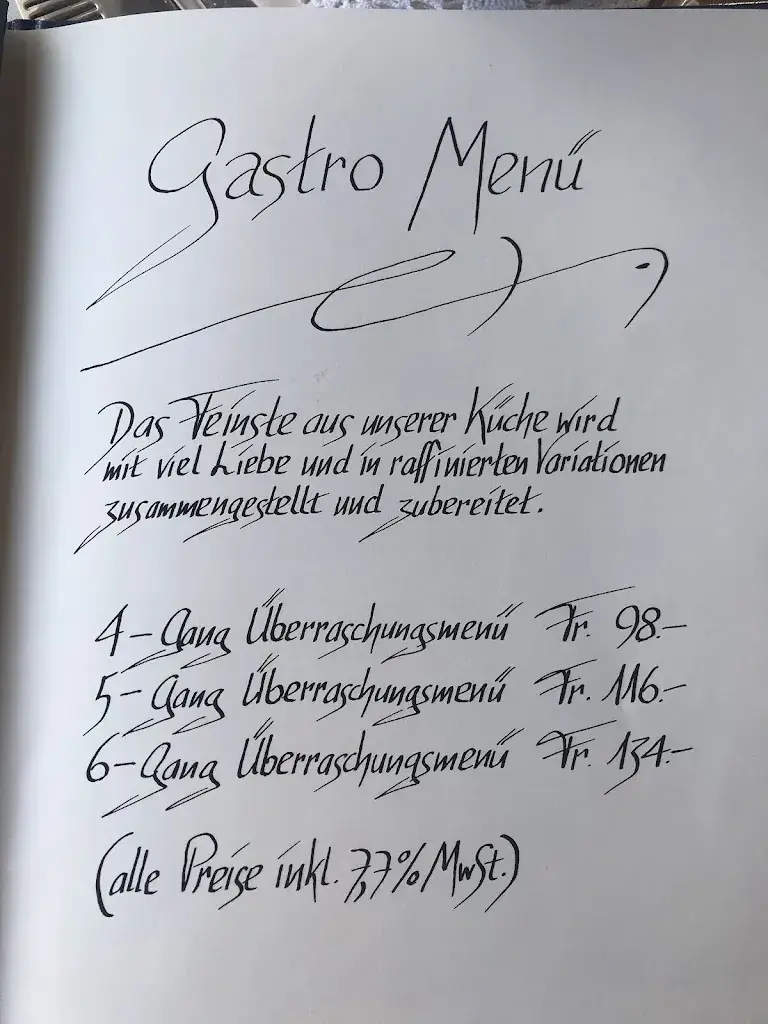 Gastro Menü
Das Feinste aus unserer Küche wird
mit viel Liebe und in raffinierten Variationen
zusammengestellt und zubereitet.
4-Gang Überraschungsmenü Fr. 98.-
5-Gang Überraschungsmenü Fr. 116.-
6-Gang Überraschungsmenü Fr. 134.-
(alle Preise inkl. 7,7% MwSt.)